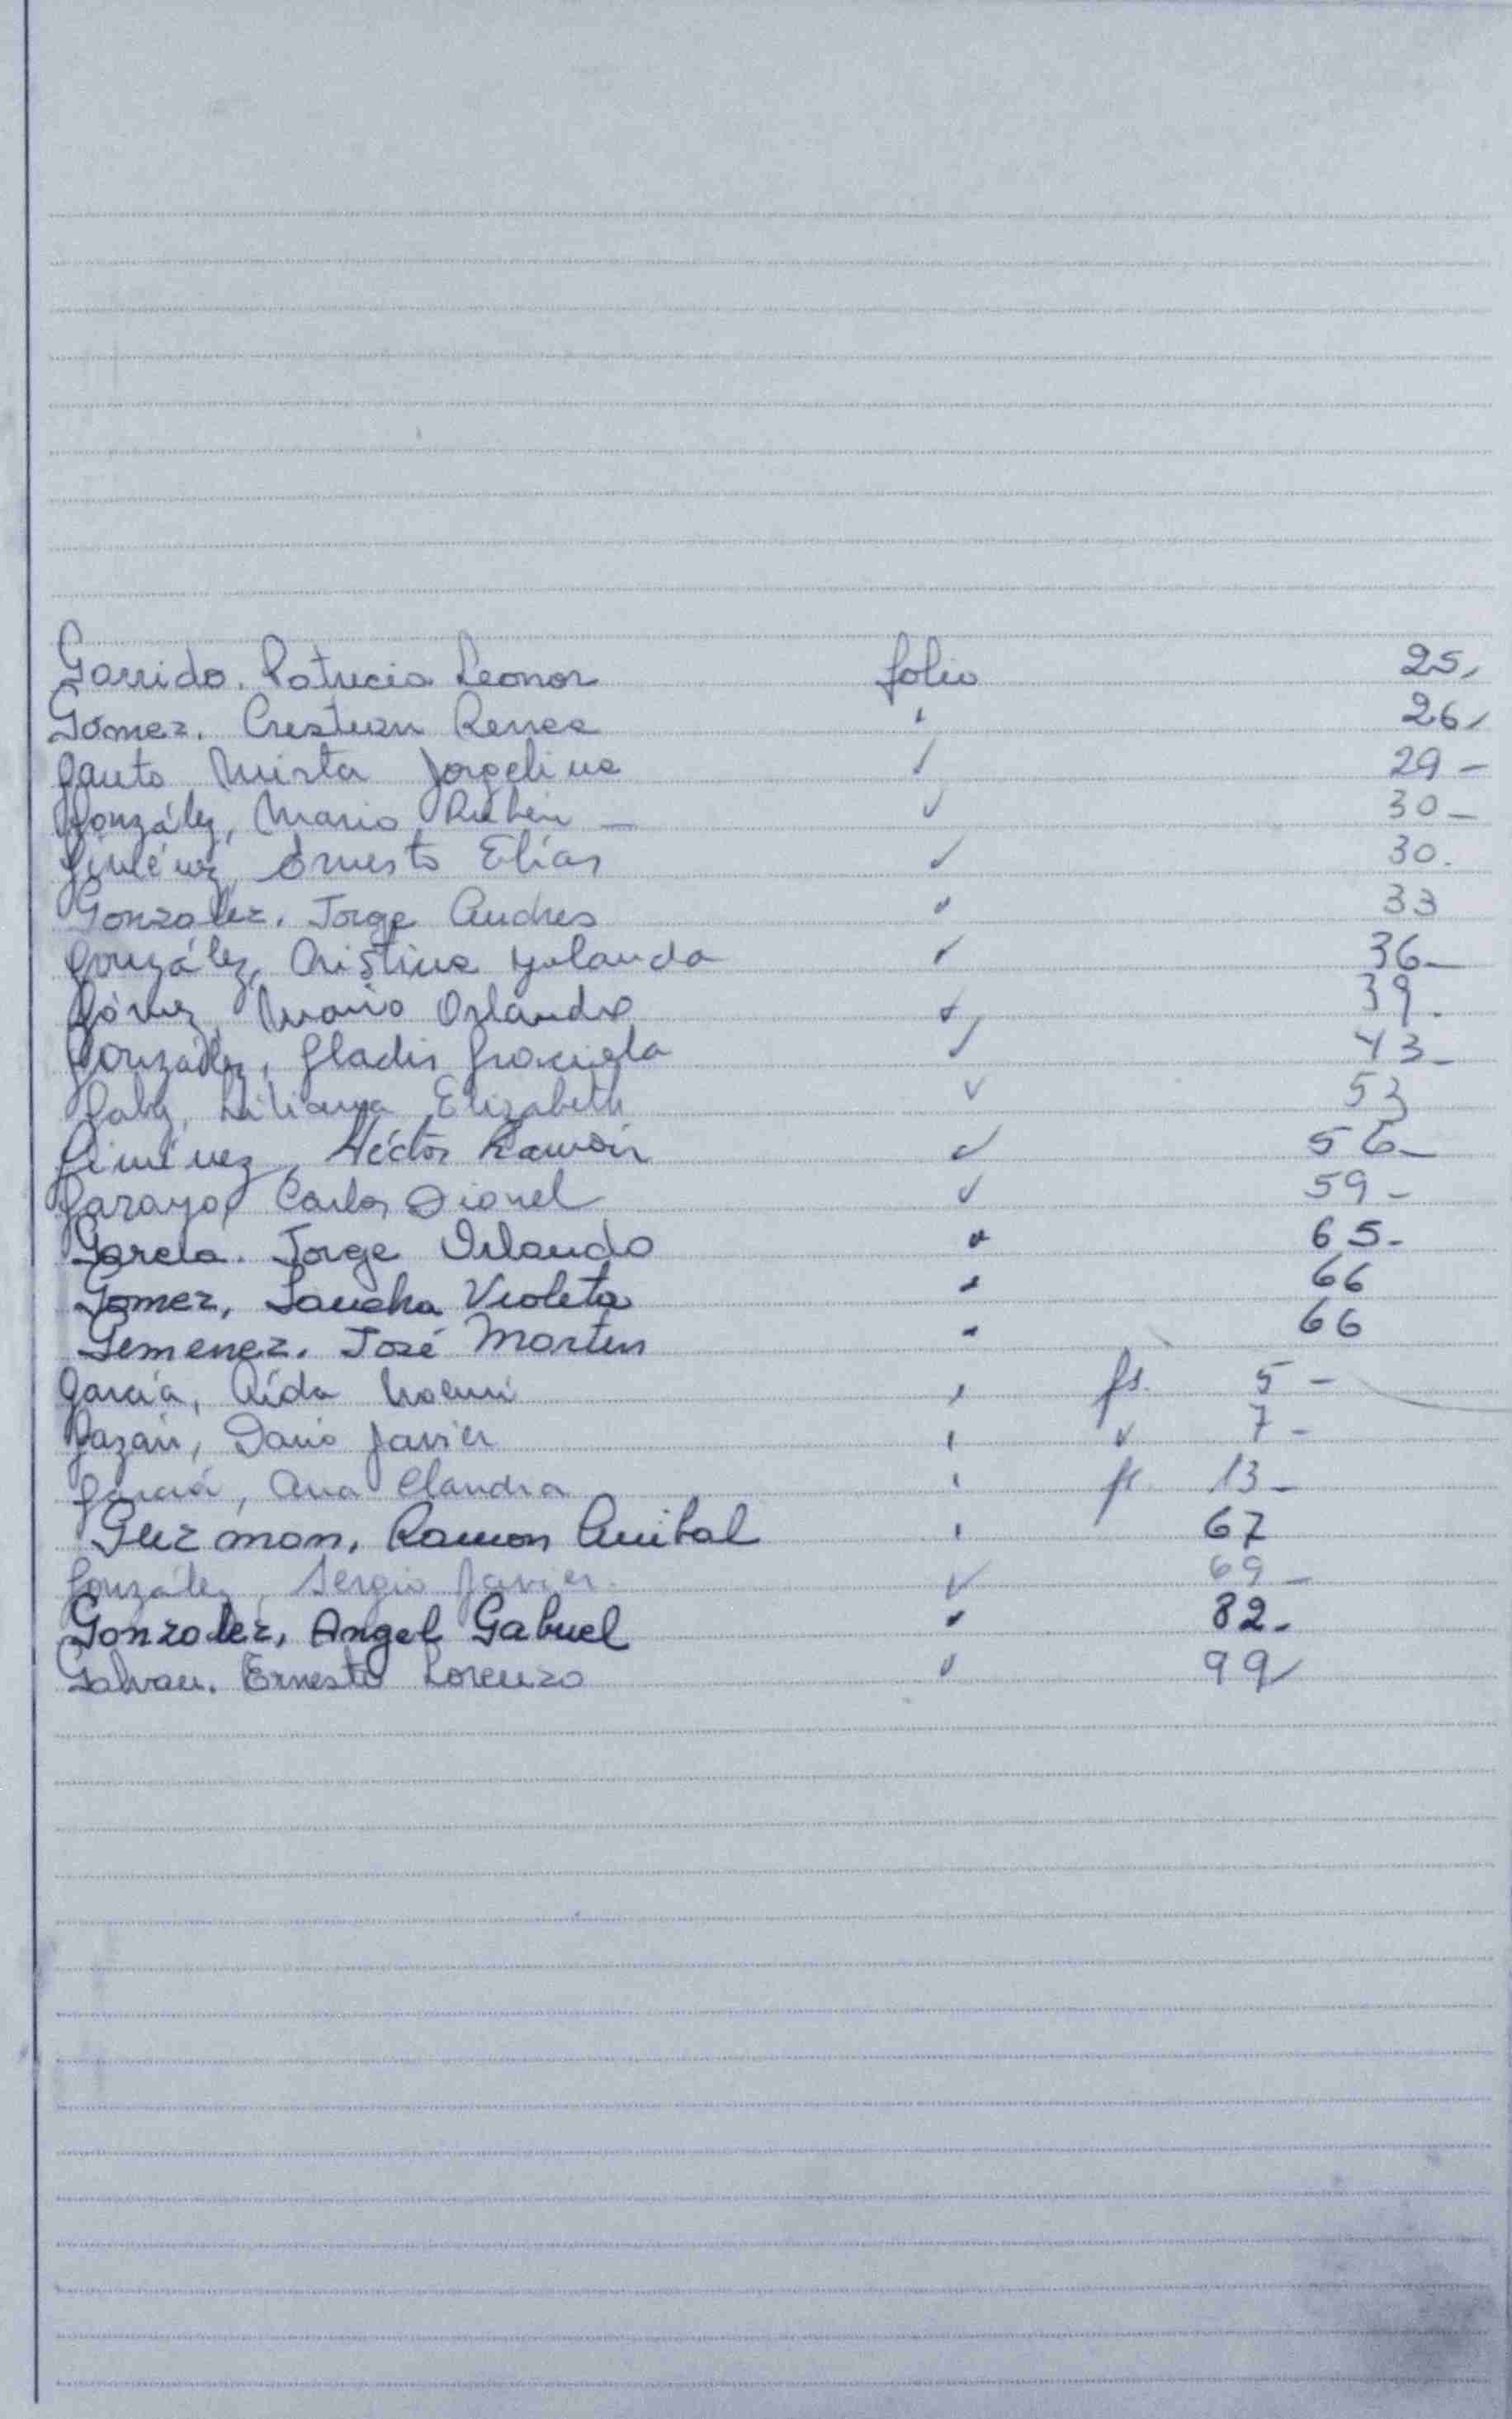 Garrido. Patricia Leonor folio 25,
Gómez. Crestian Renee " 26,
Gauto Mirta Jorgelina " 29 -
González, Mario Rubén - " 30 -
Giménez, Ernesto Elías " 30.
Gonzalez. Jorge Andres " 33
González, Cristina Yolanda " 36 -
Gómez, Mario Orlando " 39.
González, Gladis Graciela " 43 -
Liliana Elizabeth " 53
Giménez, Héctor Ramón " 56 -
Garayo, Carlos Dionel " 59 -
Garcia. Jorge Orlando " 65 -
Gomez, Sandra Violeta " 66
Gemenez. José Martin " 66
García, Aída Noemí " fs. 5 -
Gazán, Dario Javier " " 7 -
García, Ana Claudia " fs. 13 -
Guzman, Ramon Anibal " 67
González, Sergio Javier. " 69 -
Gonzalez, Angel Gabriel " 82 -
Galvan. Ernesto Lorenzo " 99,